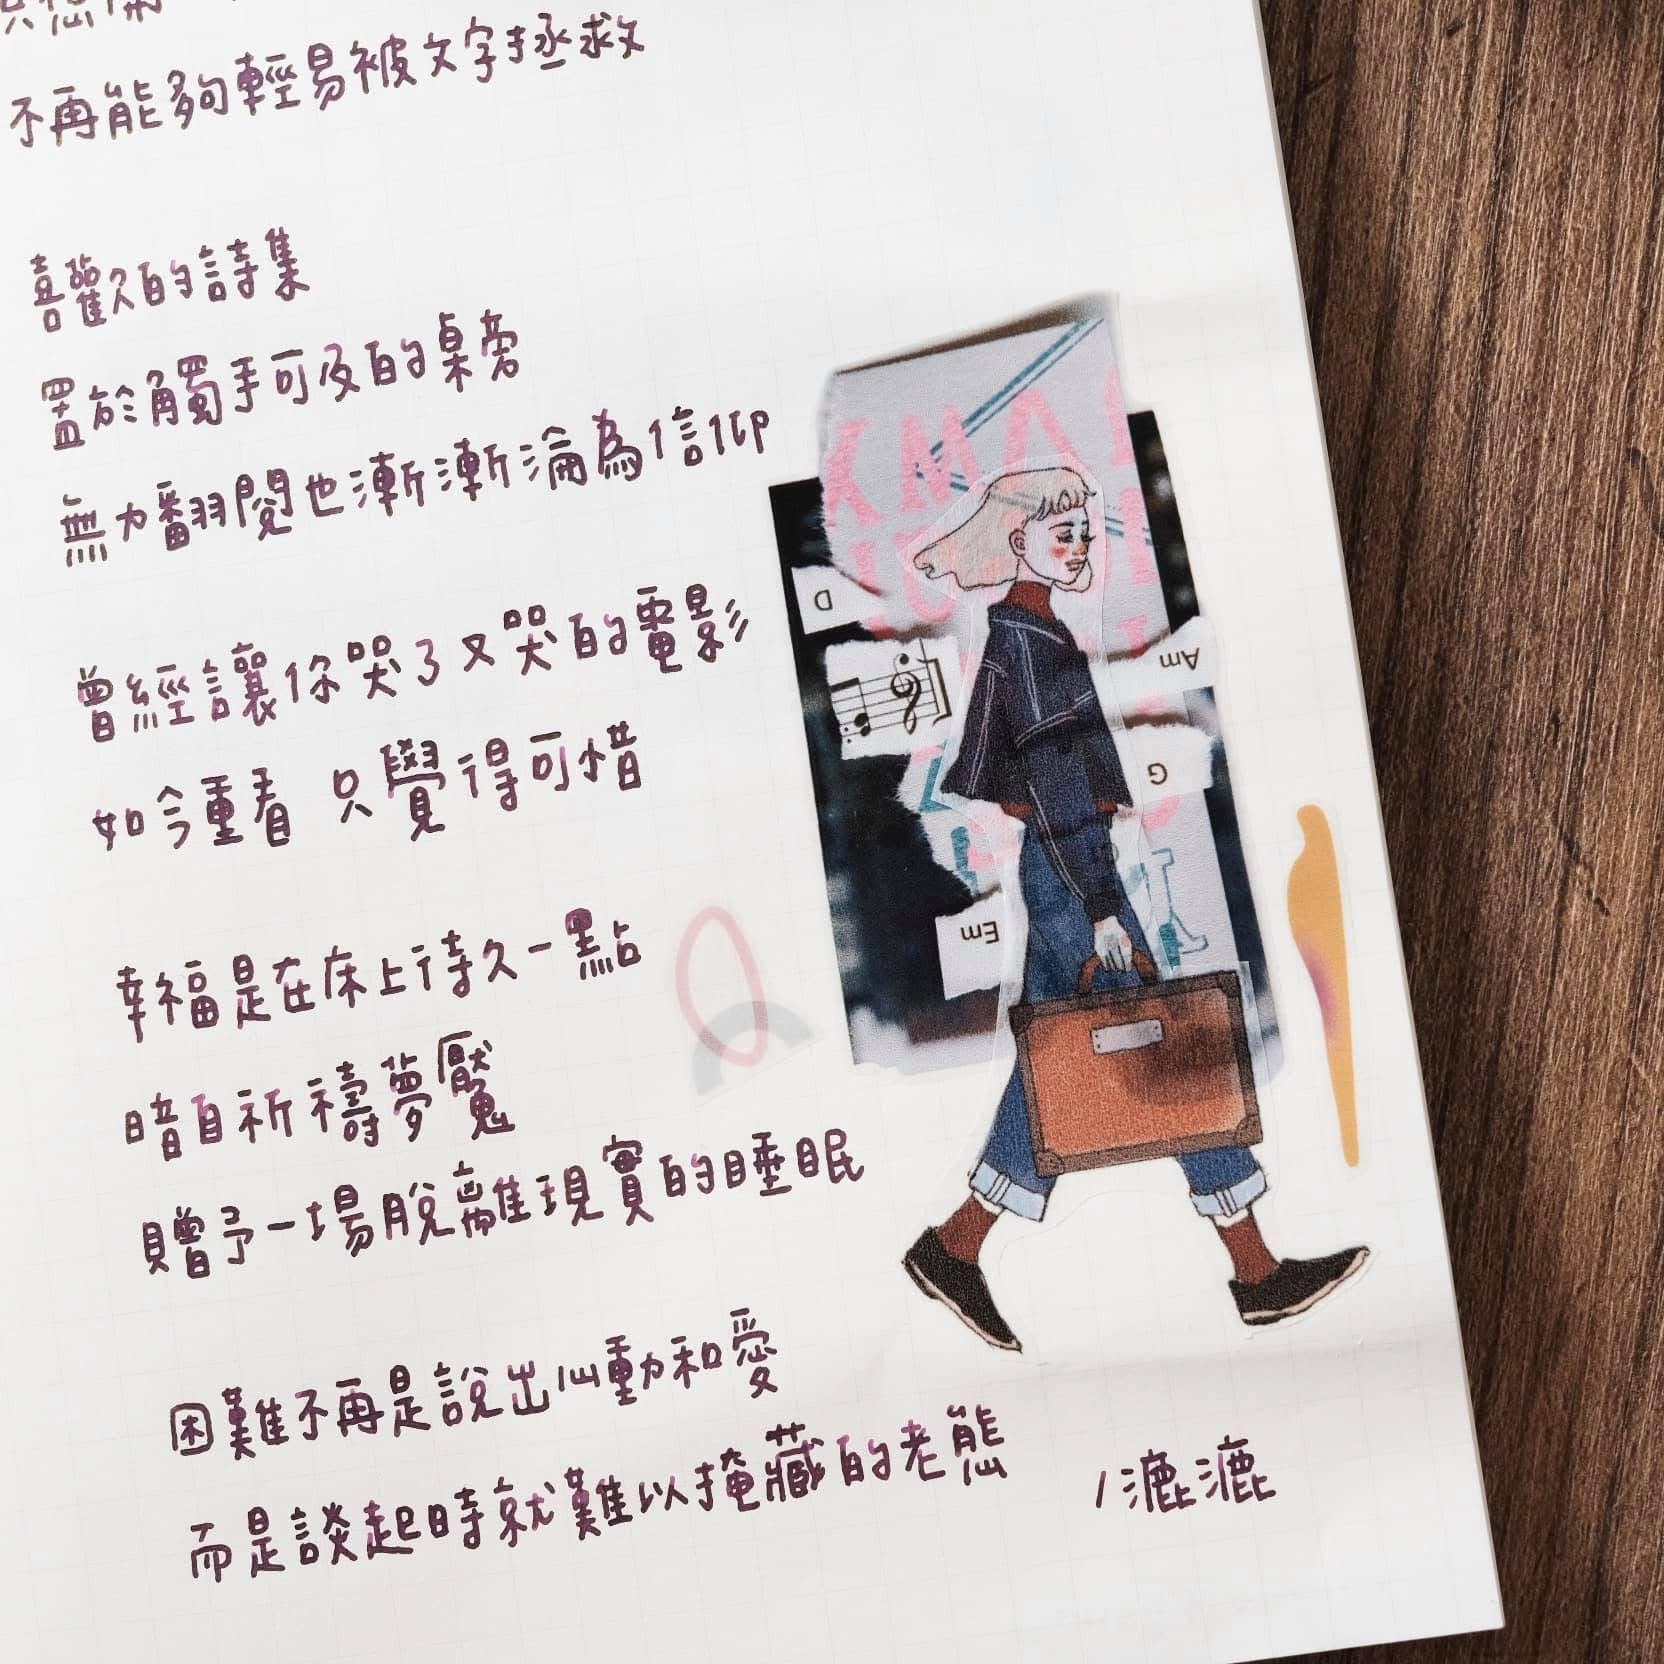 不再能夠輕易被文字拯救
喜歡的詩集
置於觸手可及的桌旁
無力翻閱也漸漸淪為信仰
曾經讓你哭了又哭的電影
如今重看 只覺得可惜
幸福是在床上待久一點
暗自祈禱夢魘
贈予一場脫離現實的睡眠
困難不再是說出心動和愛
而是談起時就難以掩藏的老態
/漉漉
D
Am
G
Em